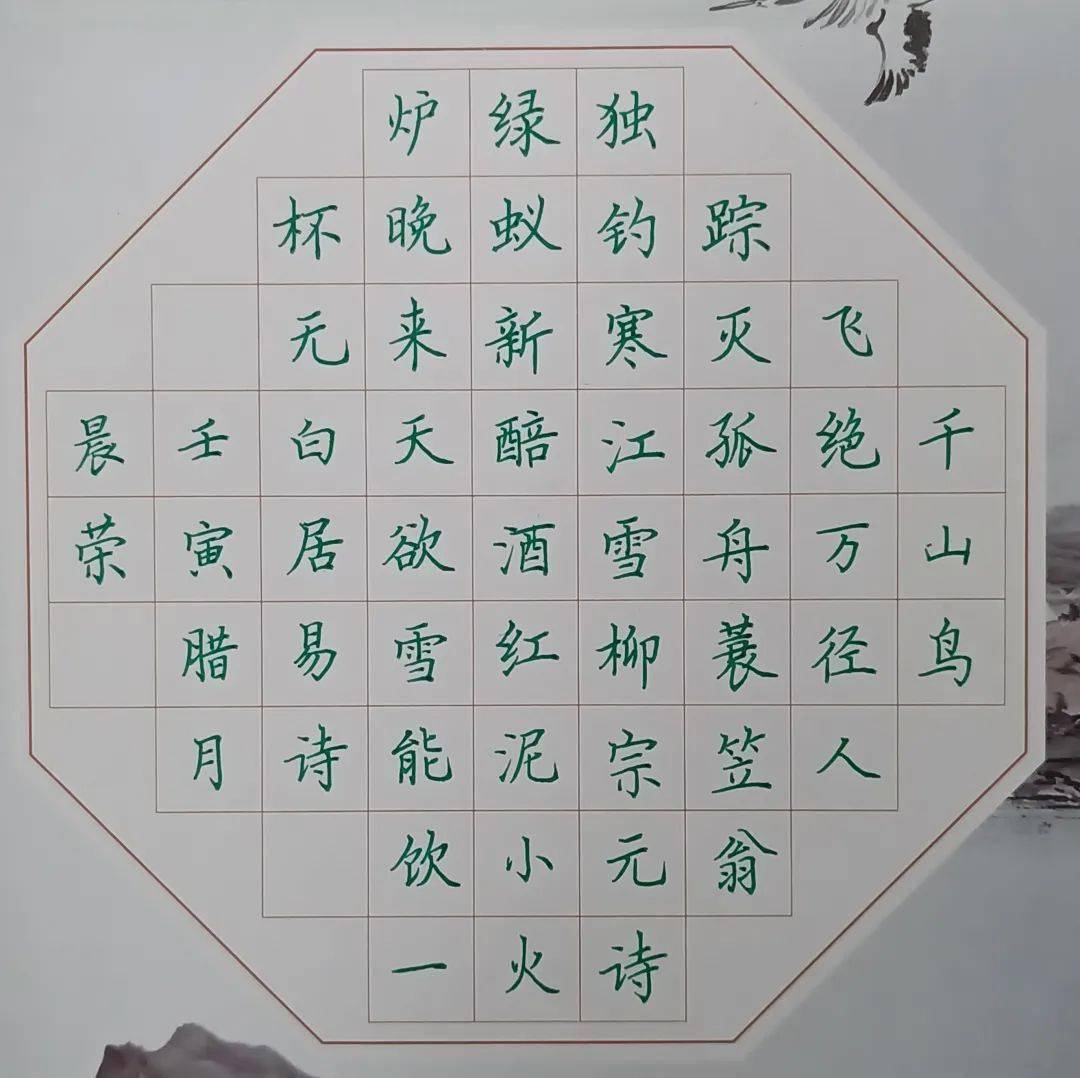 千山鸟
飞绝万径人
踪灭孤舟蓑笠翁
独钓寒江雪柳宗元诗
绿蚁新醅酒红泥小火
炉晚来天欲雪能饮一
杯无白居易诗
壬寅腊月
晨荣